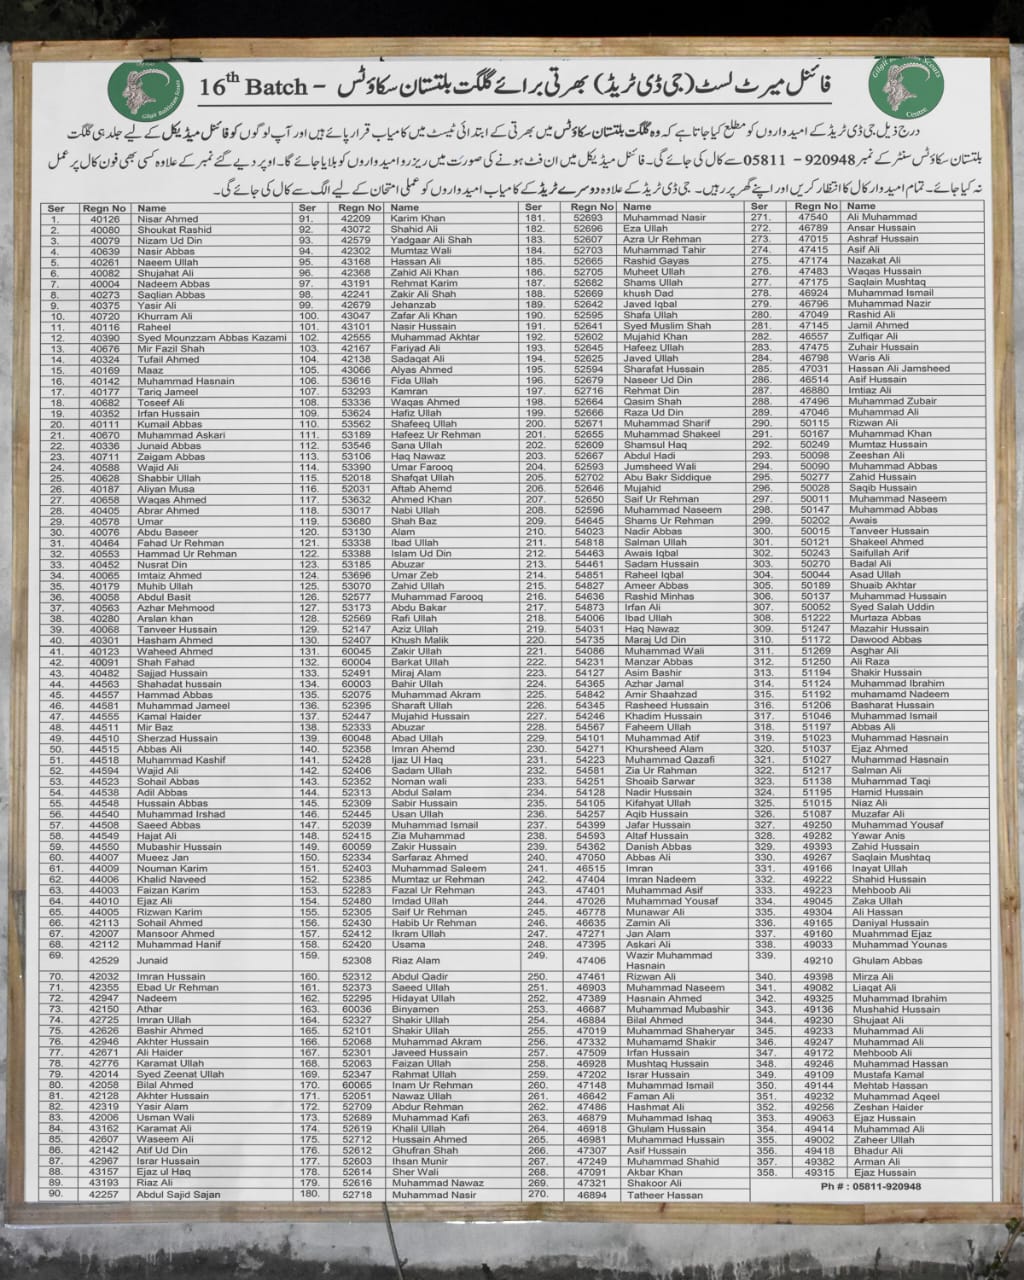 16th Batch – فائنل میرٹ لسٹ (جی ڈی ٹریڈ) بھرتی برائے گلگت بلتستان سکاؤٹس
درج ذیل جی ڈی ٹریڈ کے امیدواروں کو مطلع کیا جاتا ہے کہ وہ گلگت بلتستان سکاؤٹس میں بھرتی کے ابتدائی ٹیسٹ میں کامیاب قرار پائے ہیں اور آپ لوگوں کو فائنل میڈیکل کے لیے جلد ہی گلگت
بلتستان سکاؤٹس سنٹر کے نمبر 920948 – 05811 سے کال کی جائے گی۔ فائنل میڈیکل میں ان فٹ ہونے کی صورت میں ریزرو امیدواروں کو بلایا جائے گا۔ اوپر دیے گئے نمبر کے علاوہ کسی بھی فون کال پر عمل
نہ کیا جائے۔ تمام امیدوار کال کا انتظار کریں اور اپنے گھر پر رہیں۔ جی ڈی ٹریڈ کے علاوہ دوسرے ٹریڈ کے کامیاب امیدواروں کو عملی امتحان کے لیے الگ سے کال کی جائے گی۔
Ser Regn No Name
1. 40126 Nisar Ahmed
2. 40080 Shoukat Rashid
3. 40079 Nizam Ud Din
4. 40639 Nasir Abbas
5. 40261 Naeem Ullah
6. 40082 Shujahat Ali
7. 40004 Nadeem Abbas
8. 40273 Saqlian Abbas
9. 40375 Yasir Ali
10. 40720 Khurram Ali
11. 40116 Raheel
12. 40390 Syed Mounzzam Abbas Kazami
13. 40676 Mir Fazil Shah
14. 40324 Tufail Ahmed
15. 40169 Maaz
16. 40142 Muhammad Hasnain
17. 40177 Tariq Jameel
18. 40682 Toseef Ali
19. 40352 Irfan Hussain
20. 40111 Kumail Abbas
21. 40670 Muhammad Askari
22. 40336 Junaid Abbas
23. 40711 Zaigam Abbas
24. 40588 Wajid Ali
25. 40628 Shabbir Ullah
26. 40187 Aliyan Musa
27. 40658 Waqas Ahmed
28. 40405 Abrar Ahmed
29. 40578 Umar
30. 40076 Abdu Baseer
31. 40464 Fahad Ur Rehman
32. 40553 Hammad Ur Rehman
33. 40452 Nusrat Din
34. 40065 Imtaiz Ahmed
35. 40179 Muhib Ullah
36. 40058 Abdul Basit
37. 40563 Azhar Mehmood
38. 40280 Arslan khan
39. 40068 Tanveer Hussain
40. 40301 Hasham Ahmed
41. 40123 Waheed Ahmed
42. 40091 Shah Fahad
43. 40482 Sajjad Hussain
44. 44563 Shahadat hussain
45. 44557 Hammad Abbas
46. 44581 Muhammad Jameel
47. 44555 Kamal Haider
48. 44511 Mir Baz
49. 44510 Sherzad Hussain
50. 44515 Abbas Ali
51. 44518 Muhammad Kashif
52. 44594 Wajid Ali
53. 44523 Sohail Abbas
54. 44538 Adil Abbas
55. 44548 Hussain Abbas
56. 44540 Muhammad Irshad
57. 44508 Saeed Abbas
58. 44549 Hajat Ali
59. 44550 Mubashir Hussain
60. 44007 Mueez Jan
61. 44009 Nouman Karim
62. 44006 Khalid Naveed
63. 44003 Faizan Karim
64. 44010 Ejaz Ali
65. 44005 Rizwan Karim
66. 42113 Sohail Ahmed
67. 42007 Mansoor Ahmed
68. 42112 Muhammad Hanif
69. 42529 Junaid
70. 42032 Imran Hussain
71. 42355 Ebad Ur Rehman
72. 42947 Nadeem
73. 42150 Athar
74. 42725 Imran Ullah
75. 42626 Bashir Ahmed
76. 42946 Akhter Hussain
77. 42671 Ali Haider
78. 42776 Karamat Ullah
79. 42014 Syed Zeenat Ullah
80. 42058 Bilal Ahmed
81. 42128 Akhter Hussain
82. 42319 Yasir Alam
83. 42006 Usman Wali
84. 43162 Karamat Ali
85. 42607 Waseem Ali
86. 42142 Atif Ud Din
87. 42967 Israr Hussain
88. 43157 Ejaz ul Haq
89. 43193 Riaz Ali
90. 42257 Abdul Sajid Sajan
Ser Regn No Name
91. 42209 Karim Khan
92. 43072 Shahid Ali
93. 42579 Yadgaar Ali Shah
94. 42302 Mumtaz Wali
95. 43168 Hassan Ali
96. 42368 Zahid Ali Khan
97. 43191 Rehmat Karim
98. 42241 Zakir Ali Shah
99. 42679 Jehanzab
100. 43047 Zafar Ali Khan
101. 43101 Nasir Hussain
102. 42555 Muhammad Akhtar
103. 42167 Fariyad Ali
104. 42138 Sadaqat Ali
105. 43066 Alyas Ahmed
106. 53616 Fida Ullah
107. 53293 Kamran
108. 53336 Waqas Ahmed
109. 53624 Hafiz Ullah
110. 53562 Shafeeq Ullah
111. 53189 Hafeez Ur Rehman
112. 53546 Sana Ullah
113. 53106 Haq Nawaz
114. 53390 Umar Farooq
115. 52018 Shafqat Ullah
116. 52031 Aftab Ahemd
117. 53632 Ahmed Khan
118. 53017 Nabi Ullah
119. 53680 Shah Baz
120. 53130 Alam
121. 53338 Ibad Ullah
122. 53388 Islam Ud Din
123. 53185 Abuzar
124. 53696 Umar Zeb
125. 53070 Zahid Ullah
126. 52577 Muhammad Farooq
127. 53173 Abdu Bakar
128. 52569 Rafi Ullah
129. 52147 Aziz Ullah
130. 52407 Khush Malik
131. 60045 Zakir Ullah
132. 60004 Barkat Ullah
133. 52491 Miraj Alam
134. 60003 Bahir Ullah
135. 52075 Muhammad Akram
136. 52395 Sharaft Ullah
137. 52447 Mujahid Hussain
138. 52333 Abuzar
139. 60048 Abad Ullah
140. 52358 Imran Ahemd
141. 52428 Ijaz Ul Haq
142. 52406 Sadam Ullah
143. 52352 Noman wali
144. 52313 Abdul Salam
145. 52309 Sabir Hussain
146. 52445 Usan Ullah
147. 52039 Muhammad Ismail
148. 52415 Zia Muhammad
149. 60059 Zakir Hussain
150. 52334 Sarfaraz Ahmed
151. 52403 Muhammad Saleem
152. 52385 Mumtaz ur Rehman
153. 52283 Fazal Ur Rehman
154. 52480 Imdad Ullah
155. 52305 Saif Ur Rehman
156. 52430 Habib Ur Rehman
157. 52412 Ikram Ullah
158. 52420 Usama
159. 52308 Riaz Alam
160. 52312 Abdul Qadir
161. 52373 Saeed Ullah
162. 52295 Hidayat Ullah
163. 60036 Binyamen
164. 52327 Shakir Ullah
165. 52101 Shakir Ullah
166. 52068 Muhammad Akram
167. 52301 Javeed Hussain
168. 52063 Faizan Ullah
169. 52347 Rahmat Ullah
170. 60065 Inam Ur Rehman
171. 52051 Nawaz Ullah
172. 52709 Abdur Rehman
173. 52689 Muhammad Kafi
174. 52619 Khalil Ullah
175. 52712 Hussain Ahmed
176. 52612 Ghufran Shah
177. 52603 Ihsan Munir
178. 52614 Sher Wali
179. 52616 Muhammad Nawaz
180. 52718 Muhammad Nasir
Ser Regn No Name
181. 52693 Muhammad Nasir
182. 52696 Eza Ullah
183. 52607 Azra Ur Rehman
184. 52703 Muhammad Tahir
185. 52665 Rashid Gayas
186. 52705 Muheet Ullah
187. 52682 Shams Ullah
188. 52669 khush Dad
189. 52642 Javed Iqbal
190. 52595 Shafa Ullah
191. 52641 Syed Muslim Shah
192. 52602 Mujahid Khan
193. 52645 Hafeez Ullah
194. 52625 Javed Ullah
195. 52594 Sharafat Hussain
196. 52679 Naseer Ud Din
197. 52716 Rehmat Din
198. 52664 Qasim Shah
199. 52666 Raza Ud Din
200. 52671 Muhammad Sharif
201. 52655 Muhammad Shakeel
202. 52609 Shamsul Haq
203. 52667 Abdul Hadi
204. 52593 Jumsheed Wali
205. 52702 Abu Bakr Siddique
206. 52646 Mujahid
207. 52650 Saif Ur Rehman
208. 52596 Muhammad Naseem
209. 54645 Shams Ur Rehman
210. 54023 Nadir Abbas
211. 54818 Salman Ullah
212. 54463 Awais Iqbal
213. 54461 Sadam Hussain
214. 54851 Raheel Iqbal
215. 54827 Ameer Abbas
216. 54636 Rashid Minhas
217. 54873 Irfan Ali
218. 54006 Ibad Ullah
219. 54031 Haq Nawaz
220. 54735 Maraj Ud Din
221. 54086 Muhammad Wali
222. 54231 Manzar Abbas
223. 54127 Asim Bashir
224. 54365 Azhar Jamal
225. 54842 Amir Shaahzad
226. 54345 Rasheed Hussain
227. 54246 Khadim Hussain
228. 54567 Faheem Ullah
229. 54101 Muhammad Atif
230. 54271 Khursheed Alam
231. 54223 Muhammad Qazafi
232. 54581 Zia Ur Rahman
233. 54251 Shoaib Sarwar
234. 54128 Nadir Hussain
235. 54105 Kifahyat Ullah
236. 54257 Aqib Hussain
237. 54399 Jafar Hussain
238. 54593 Altaf Hussain
239. 54362 Danish Abbas
240. 47050 Abbas Ali
241. 46515 Imran
242. 47404 Imran Nadeem
243. 47401 Muhammad Asif
244. 47026 Muhammad Yousaf
245. 46778 Munawar Ali
246. 46635 Zamin Ali
247. 47271 Jan Alam
248. 47395 Askari Ali
249. 47406 Wazir Muhammad Hasnain
250. 47461 Rizwan Ali
251. 46903 Muhammad Naseem
252. 47389 Hasnain Ahmed
253. 46687 Muhammad Mubashir
254. 46884 Bilal Ahmed
255. 47019 Muhammad Shaheryar
256. 47332 Muhamamd Shakir
257. 47509 Irfan Hussain
258. 46928 Mushtaq Hussain
259. 47202 Israr Hussain
260. 47148 Muhammad Ismail
261. 46642 Faman Ali
262. 47486 Hashmat Ali
263. 46879 Muhammad Ishaq
264. 46918 Ghulam Hussain
265. 46981 Muhammad Hussain
266. 47307 Asif Hussain
267. 47249 Muhammad Shahid
268. 47091 Akbar Khan
269. 47321 Shakoor Ali
270. 46894 Tatheer Hassan
Ser Regn No Name
271. 47540 Ali Muhammad
272. 46789 Ansar Hussain
273. 47015 Ashraf Hussain
274. 47415 Asif Ali
275. 47174 Nazakat Ali
276. 47483 Waqas Hussain
277. 47175 Saqlain Mushtaq
278. 46924 Muhammad Ismail
279. 46796 Muhammad Nazir
280. 47049 Rashid Ali
281. 47145 Jamil Ahmed
282. 46557 Zulfiqar Ali
283. 47475 Zuhair Hussain
284. 46798 Waris Ali
285. 47031 Hassan Ali Jamsheed
286. 46514 Asif Hussain
287. 46880 Imtiaz Ali
288. 47496 Muhammad Zubair
289. 47046 Muhammad Ali
290. 50115 Rizwan Ali
291. 50167 Muhammad Khan
292. 50249 Mumtaz Hussain
293. 50098 Zeeshan Ali
294. 50090 Muhammad Abbas
295. 50277 Zahid Hussain
296. 50028 Saqib Hussain
297. 50011 Muhammad Naseem
298. 50147 Muhammad Abbas
299. 50202 Awais
300. 50015 Tanveer Hussain
301. 50121 Shakeel Ahmed
302. 50243 Saifullah Arif
303. 50270 Badal Ali
304. 50044 Asad Ullah
305. 50189 Shuaib Akhtar
306. 50137 Muhammad Hussain
307. 50052 Syed Salah Uddin
308. 51222 Murtaza Abbas
309. 51247 Mazahir Hussain
310. 51172 Dawood Abbas
311. 51269 Asghar Ali
312. 51250 Ali Raza
313. 51194 Shakir Hussain
314. 51124 Muhammad Ibrahim
315. 51192 muhamamd Nadeem
316. 51206 Basharat Hussain
317. 51046 Muhammad Ismail
318. 51197 Abbas Ali
319. 51023 Muhammad Hasnain
320. 51037 Ejaz Ahmed
321. 51027 Muhammad Hasnain
322. 51217 Salman Ali
323. 51138 Muhammad Taqi
324. 51195 Hamid Hussain
325. 51015 Niaz Ali
326. 51087 Muzafar Ali
327. 49250 Muhammad Yousaf
328. 49282 Yawar Anis
329. 49393 Zahid Hussain
330. 49267 Saqlain Mushtaq
331. 49166 Inayat Ullah
332. 49222 Shahid Hussain
333. 49223 Mehboob Ali
334. 49045 Zaka Ullah
335. 49304 Ali Hassan
336. 49165 Daniyal Hussain
337. 49160 Muahmmad Ejaz
338. 49033 Muhammad Younas
339. 49210 Ghulam Abbas
340. 49398 Mirza Ali
341. 49082 Liaqat Ali
342. 49325 Muhammad Ibrahim
343. 49136 Mushahid Hussain
344. 49230 Shujaat Ali
345. 49233 Muhammad Ali
346. 49247 Muhammad Ali
347. 49172 Mehboob Ali
348. 49246 Muhammad Hassan
349. 49109 Mustafa Kamal
350. 49144 Mehtab Hassan
351. 49232 Muhammad Aqeel
352. 49256 Zeshan Haider
353. 49063 Ejaz Hussain
354. 49414 Muhammad Ali
355. 49002 Zaheer Ullah
356. 49418 Bhadur Ali
357. 49382 Arman Ali
358. 49315 Ejaz Hussain
Ph # : 05811-920948